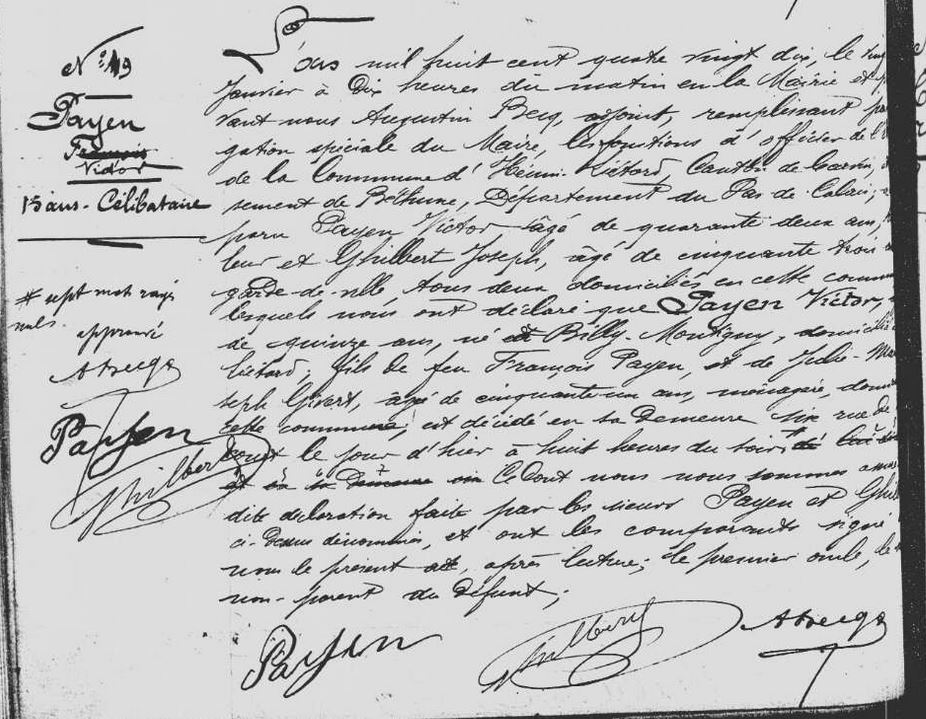 N° 19
Payen
François
Victor
15 ans - Célibataire
# sept mot rayés
nuls.
approuvé
A Becq
Payen
Ghilbert
L'an mil huit cent quatre vingt dix, le
Janvier à Dix heures du matin en la Mairie et
vant nous Augustin Becq, adjoint, remplissant
gation spéciale du Maire, les fonctions d'officier de l'
de la Commune d'Hénin-Liétard, Canton de Carvin,
sement de Béthune, Département du Pas de Calais,
paru Payen Victor âgé de quarante deux ans,
leur et Ghilbert Joseph, âgé de cinquante trois
garde-de-ville, tous deux domiciliés en cette comm
lesquels nous ont déclaré que Payen Victor,
de quinze ans, né à Billy-Montigny, domicilié
Liétard; fils de feu François Payen, et de Julie-Ma
seph Givert, âgée de cinquante un ans, ménagère, domi
cette commune, est décédé en sa Demeure sise rue de
le jour d'hier à huit heures du soir
Ce dont nous nous sommes
dite déclaration faite par les sieurs Payen et Ghil
ci-dessus dénommés, et ont les comparants signé
nous le présent acte, après lecture; le premier oncle, le
non-parent du défunt;
Payen
Ghilbert
A Becq